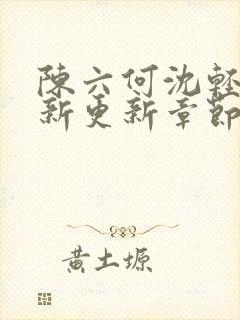 陳六何沈輕
新更新章節
黃土塬